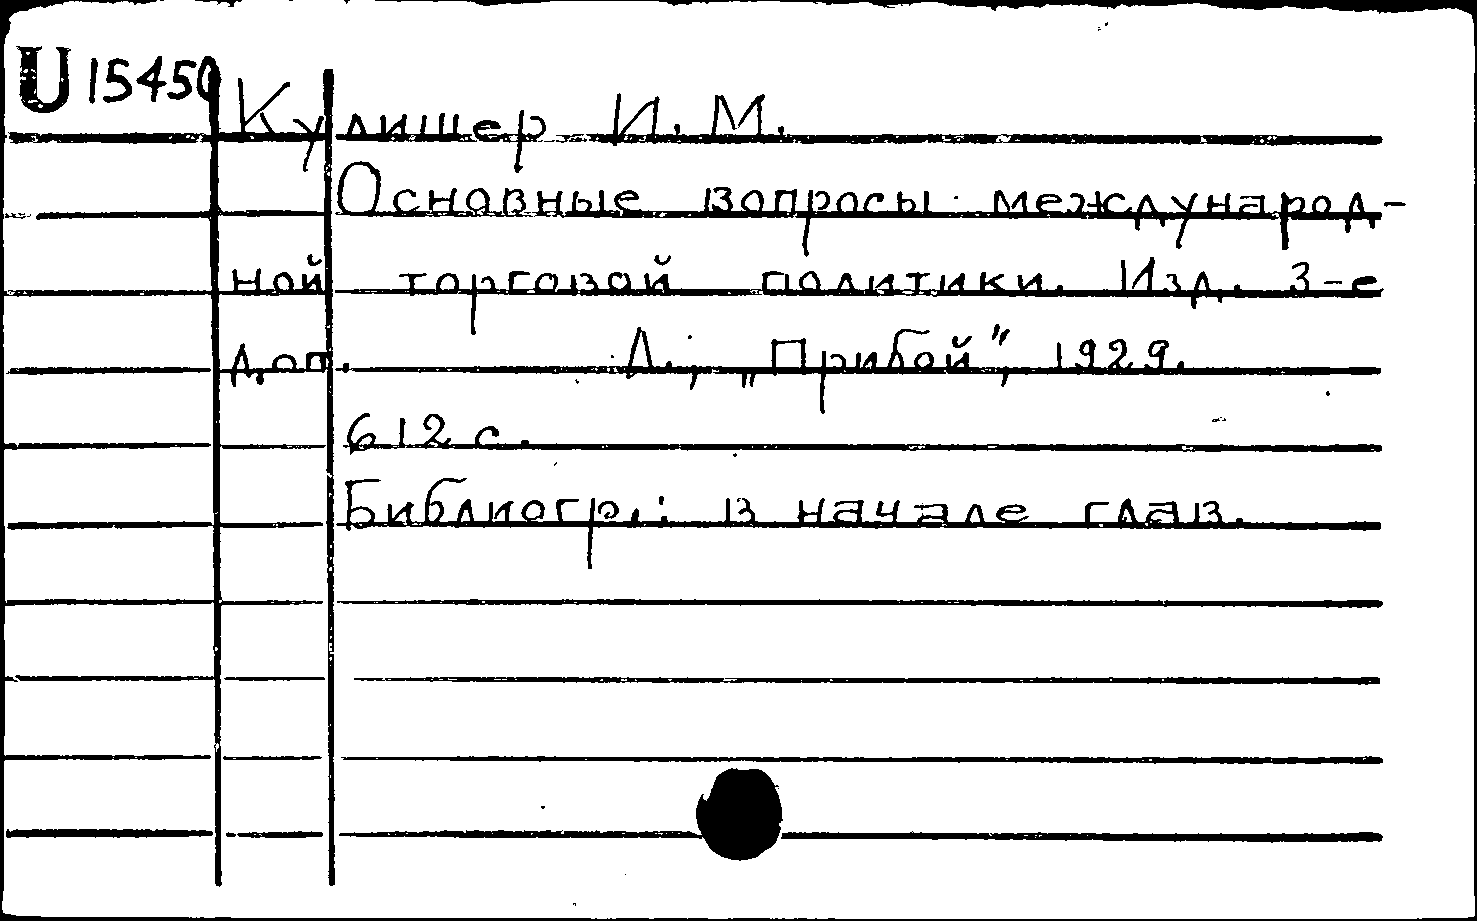 U 15450
Кулишер И. М.
Основные вопросы международ-
ной торговой политики. Изд. 3-е
доп. Л., „Прибой", 1929.
612 с.
Библиогр.: в начале глав.